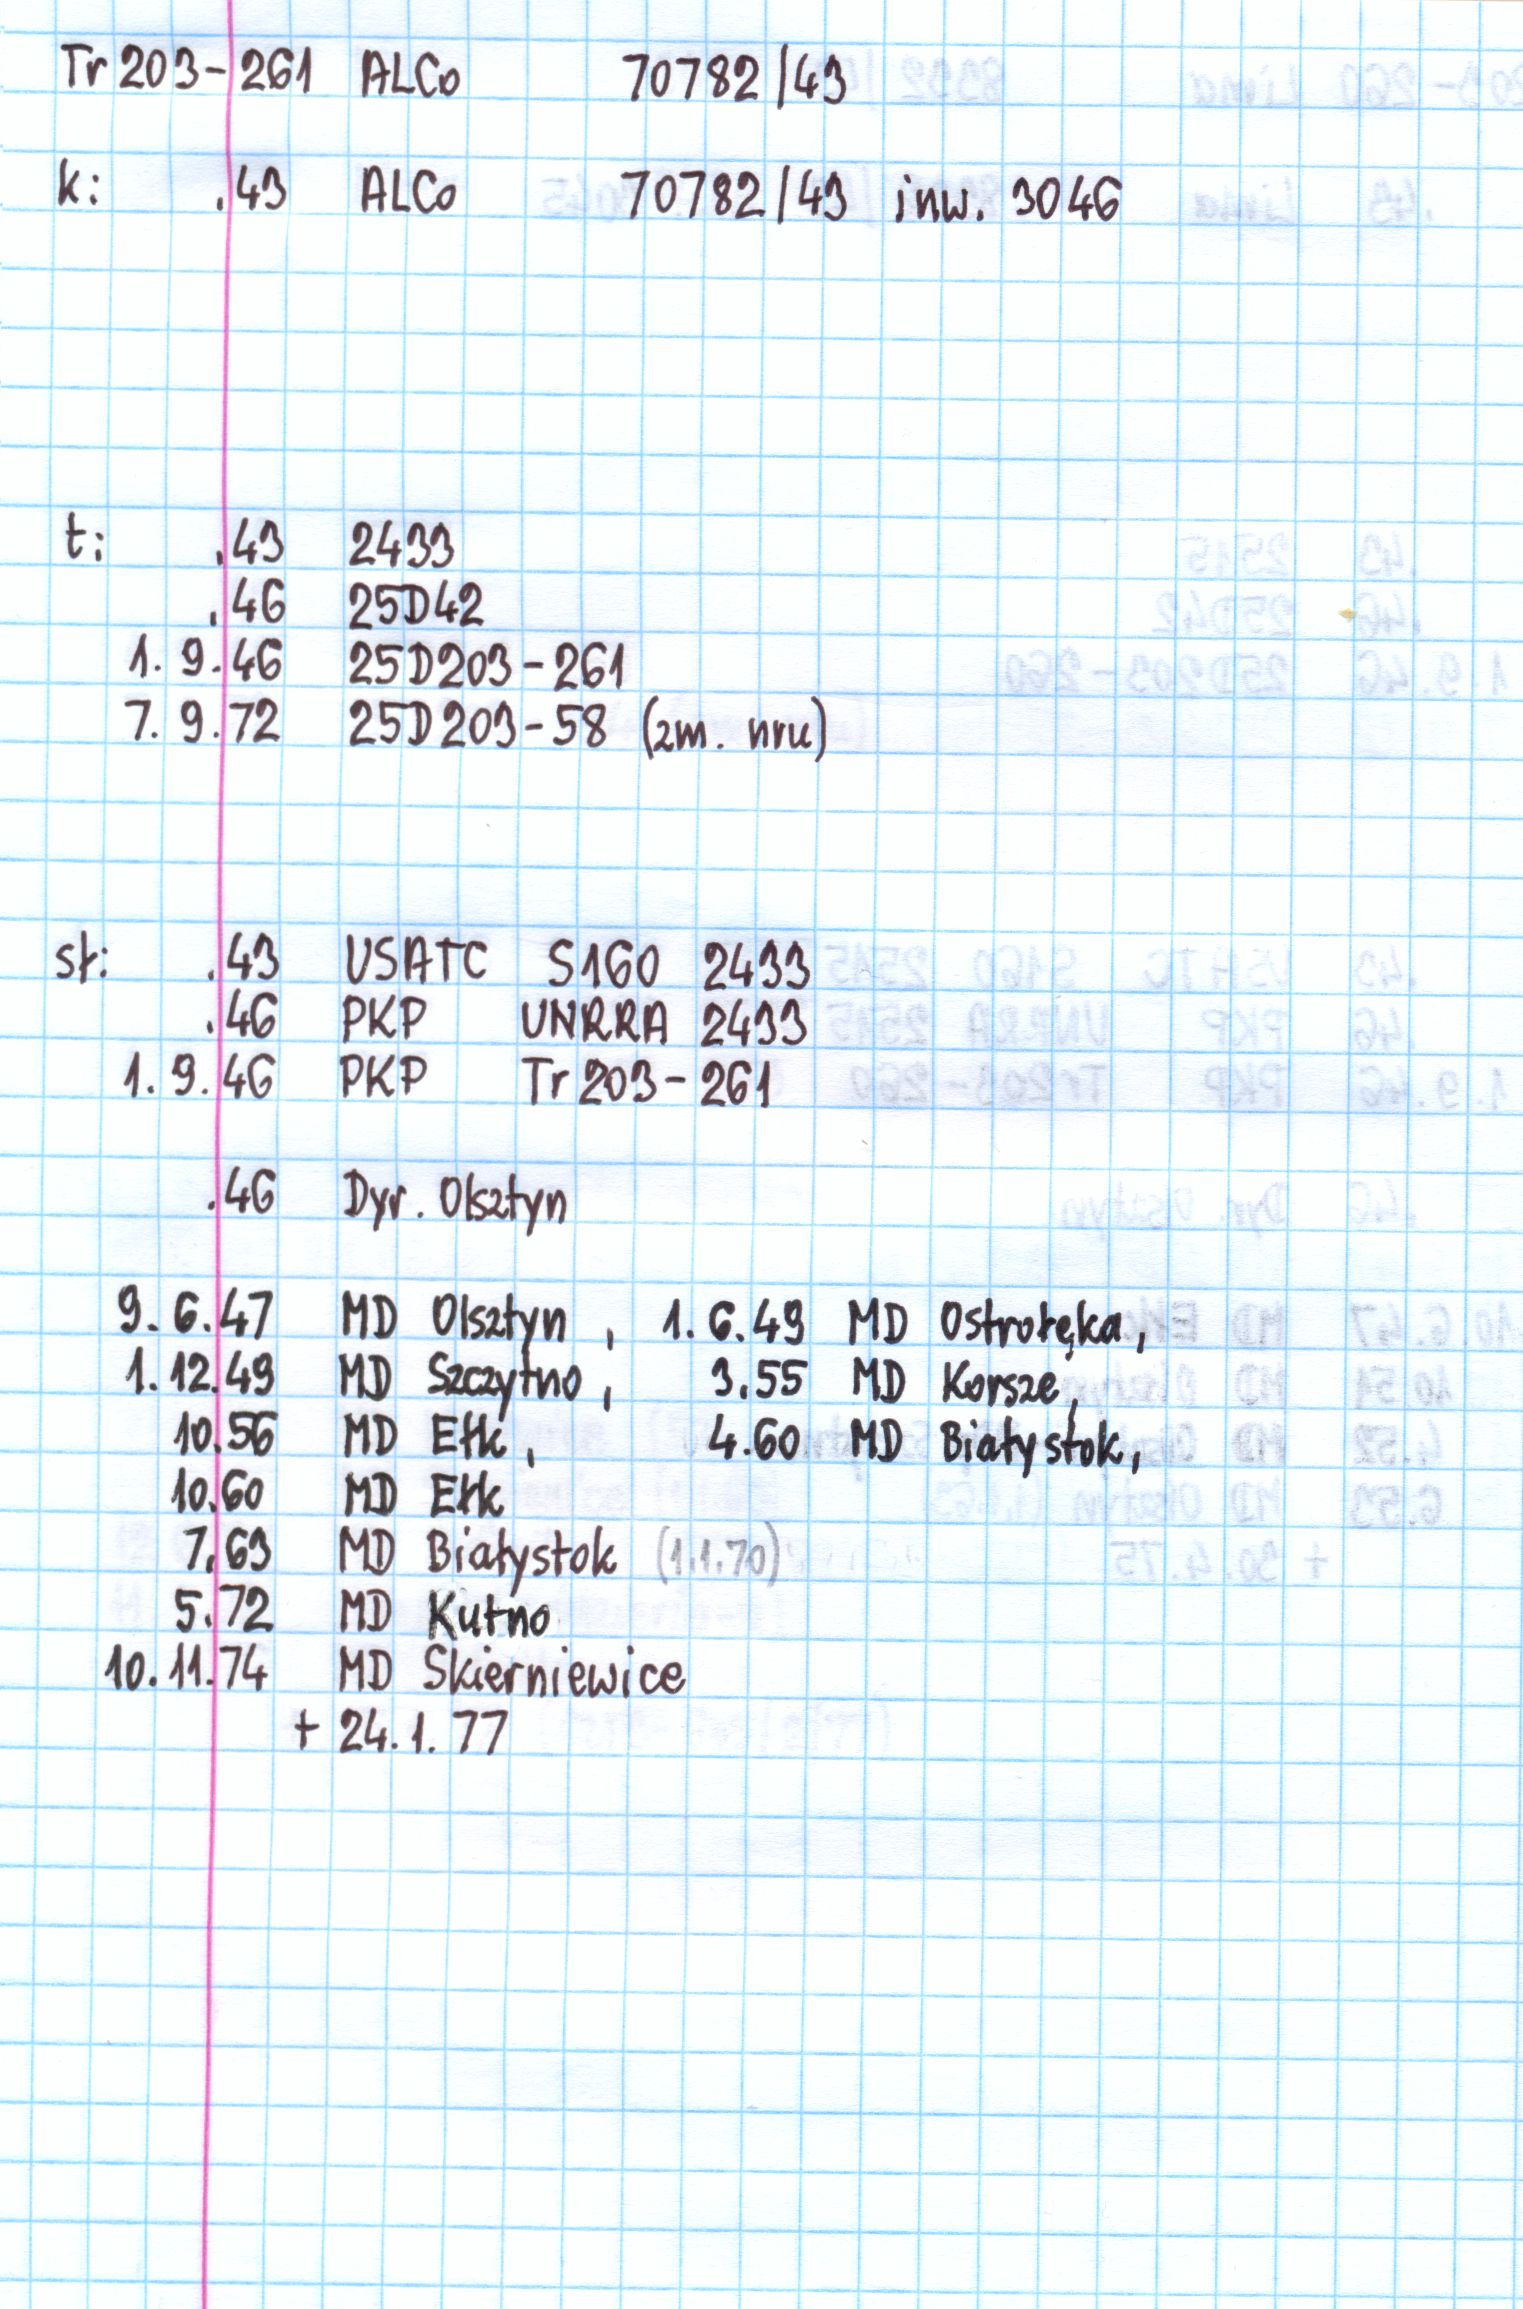 Tr 203-261 ALCo 70782/43
k: .43 ALCo 70782/43 inw. 3046
t: .43 2433
.46 25D42
1.9.46 25D203-261
7.9.72 25D203-58 (zm. nru)
sł: .43 USATC S160 2433
.46 PKP UNRRA 2433
1.9.46 PKP Tr 203-261
.46 Dyr. Olsztyn
9.6.47 MD Olsztyn, 1.6.49 MD Ostrołęka,
1.12.49 MD Szczytno, 3.55 MD Korsze,
10.56 MD Ełk, 4.60 MD Białystok,
10.60 MD Ełk
7.63 MD Białystok (1.1.70)
5.72 MD Kutno
10.11.74 MD Skierniewice
+ 24.1.77